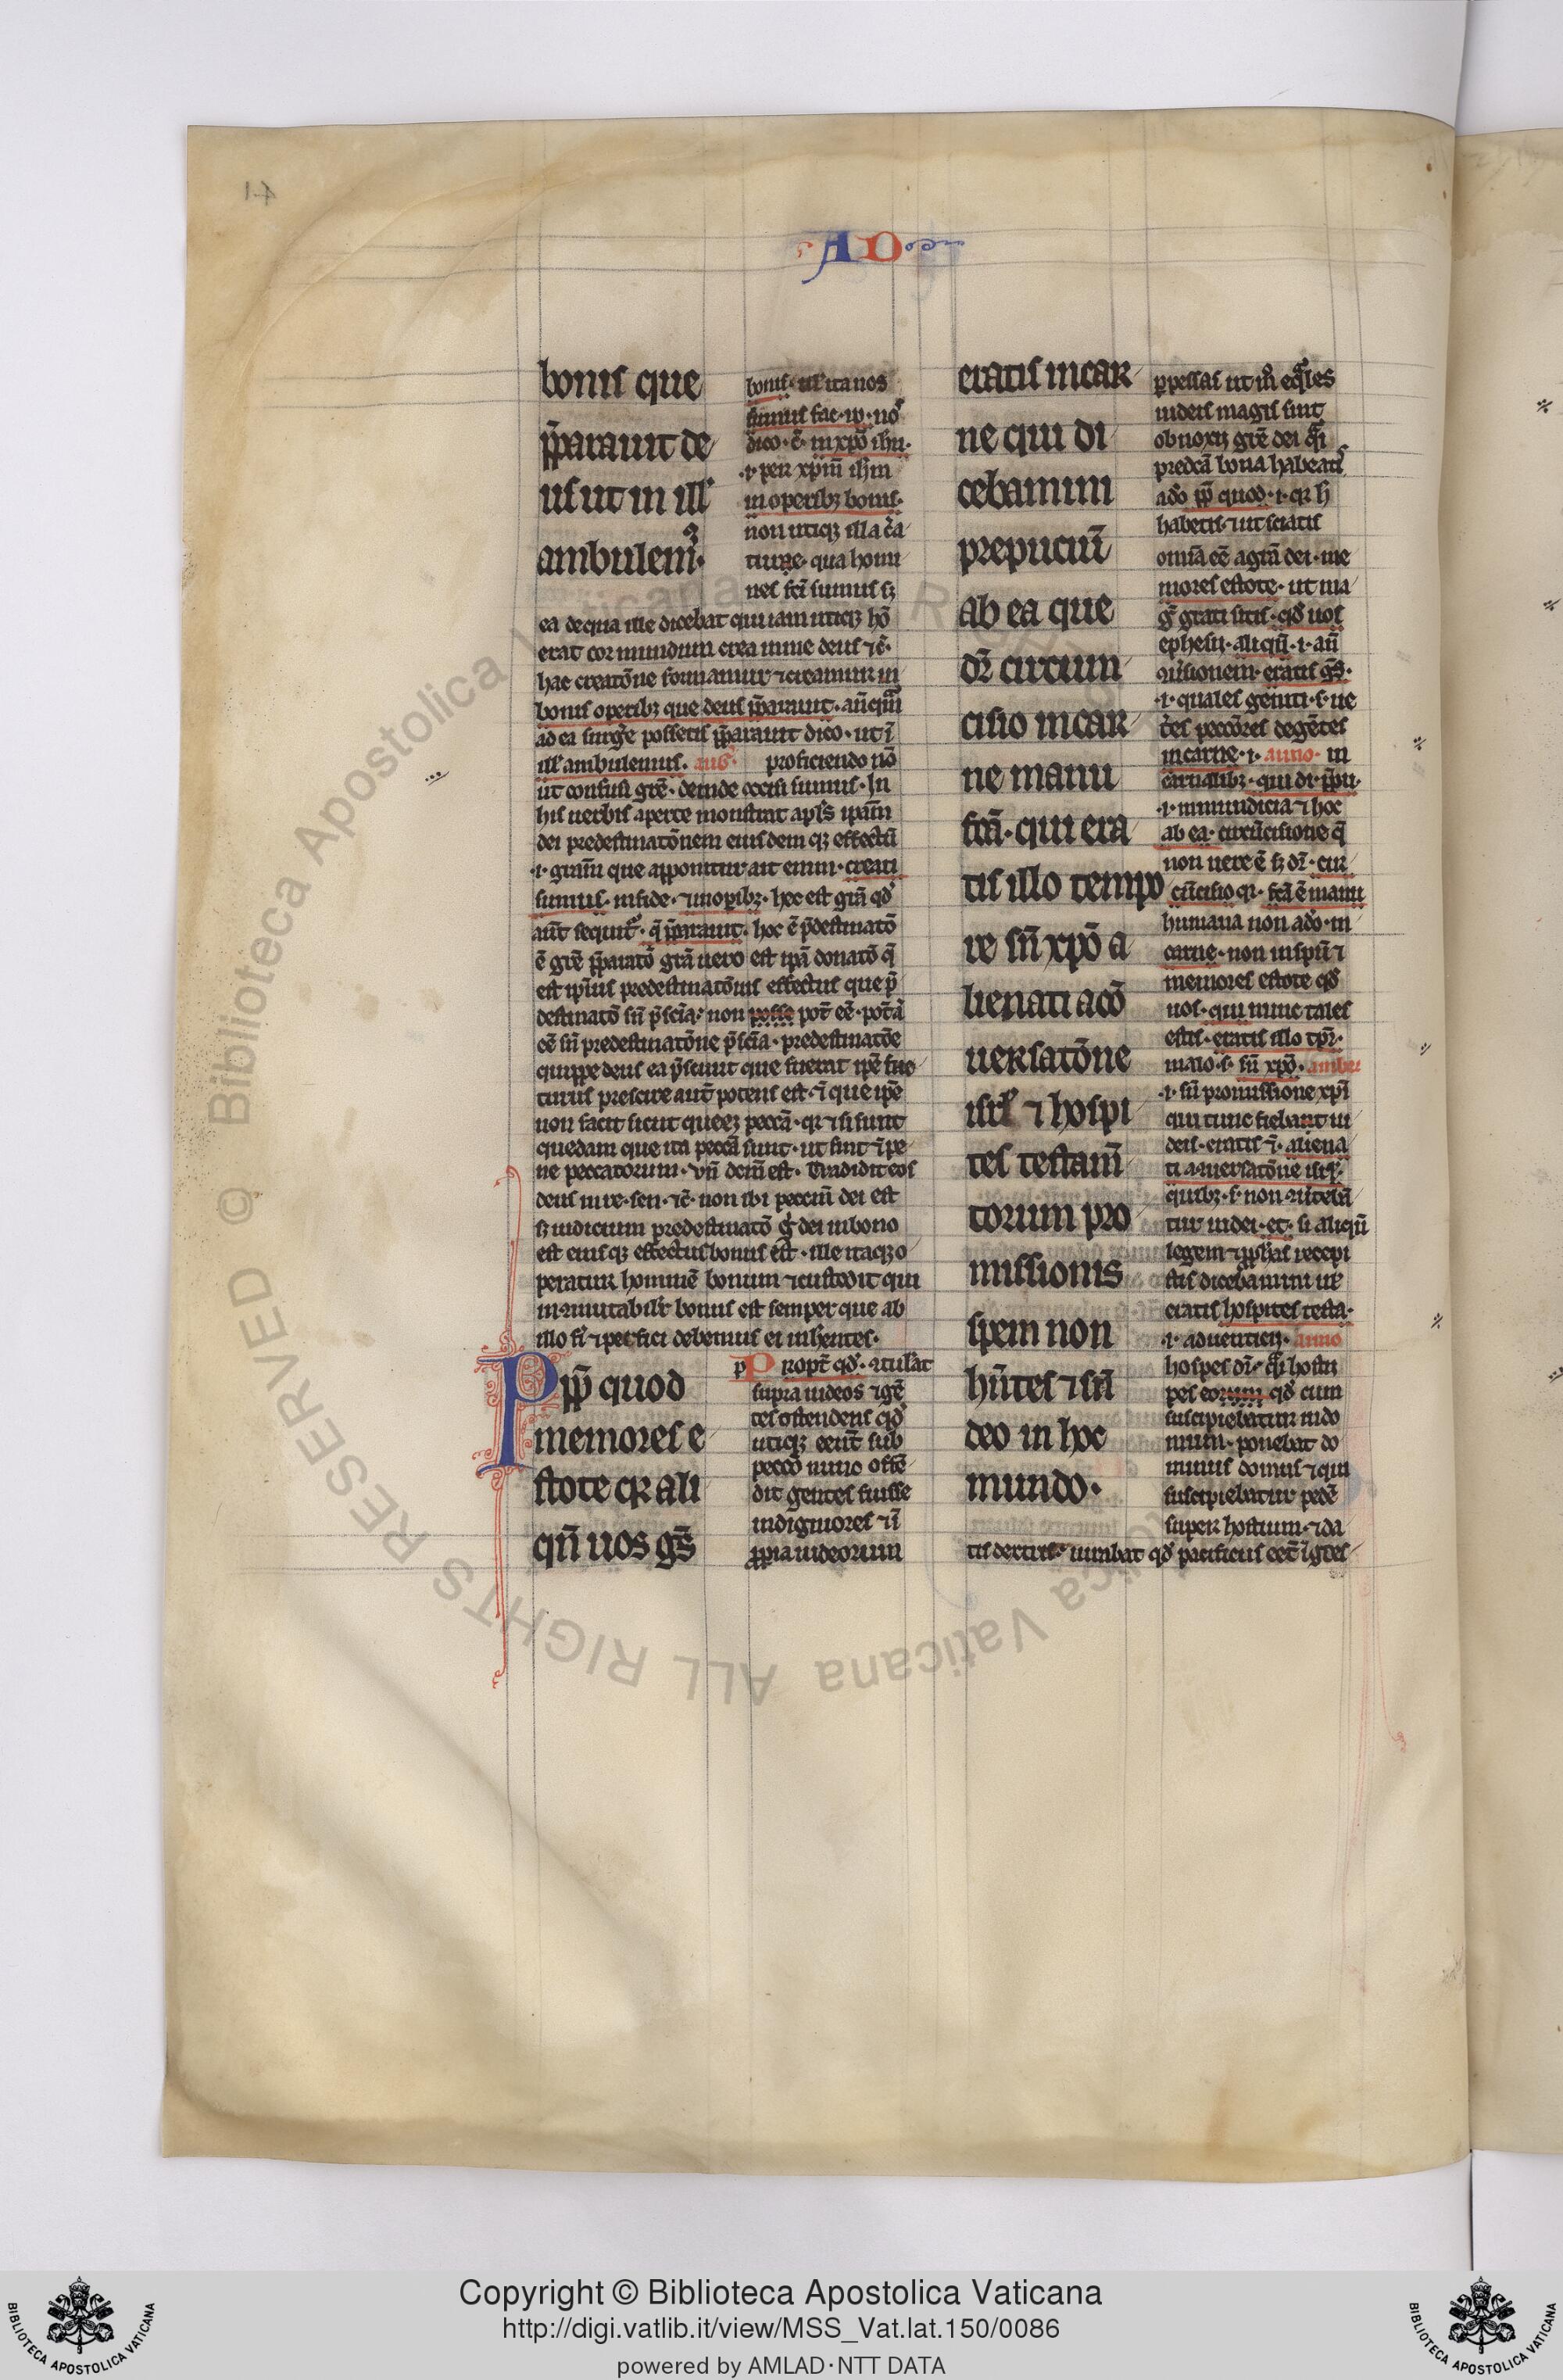 AD
bonis que
p̄parauit de
us ut in ill'
ambulem᷒
bonis. uł ita nos
dico. ē. in xp̄o ih̄u.
.i. per xp̄m ih̄m
in operibꝫ bonis.
non utiqꝫ illa c̄a
ture. qua homi
nes fc̄i sumus sꝫ
ea de qua ille dicebat qui iam utiqꝫ hō
erat cor mundum crea in me deus ⁊c̄.
hac creatōne formamur ⁊ creamur in
bonis operibꝫ que deus p̄parauit. an̄cꝙ̄
ad ea surg̾e possetis p̄parauit dico. ut ī
ill' ambulemus. aug᷒. proficiendo nō
ut confusi grē. deinde occisi sumus. In
his uerbis aperte monstrat apl's ipam̄
dei predestinatōnem eiusdem qꝫ effectū
.i. gram̄ que apponitur ait enim. creati
sumus. in fide. ⁊ in op̱ibꝫ. hec est grā qd̾
aūt sequit᷒. q̄ p̄parauit. hoc ē p̄destinatō
ē grē p̄paratō grā uero est ipa donatō q̄
est ip̄ius predestinatōnis effectus que p̄
destinatō sn̄ p̄scīa. non posse pot̄ eē. potā
eē sn̄ predestinatōne p̄scīa. predestinatōe
quippe deus ea p̄sciuit que fuerat ipē fac
turus prescire aut̄ potens est. ⁊ que ipē
non facit sicut queqꝫ peccā. qꝛ ⁊ si sunt
quedam que ita peccā sunt. ut sint ⁊ pe
ne peccatorum. vn̄ dcm̄ est. Tradidit eos
deus in re. sen. ⁊c̄. non ibi peccm̄ dei est
sꝫ iudicium predestinatō g̊ dei in bono
est eius qꝫ effectus bonus est. ille itaqꝫ o
peratur hominē bonum ⁊ custodit qui
inmutabilit̾ bonus est semper que ab
illo fi̾ ⁊ perfici debemus ei inh̾entes.
Pp̄ quod
memores e
stote qꝛ ali
qn̄ uos gs̄
Propt̾ qd̾. ⁊tulerat
supra iudeos ⁊ gē
tes ostendens qd̾
utiqꝫ eent̄ sub
peccō nunc ostē
dit gentes fuisse
indigniores ⁊ ī
p̱pria iudeorum
eratis in car
ne qui di
cebamini
prepuciū
ab ea que
dr̄ circum
cisio in car
ne manu
fcā. qui era
tis illo tempo
re sn̄ xp̄o a
lienati a cō
uersatōne
isrl' ⁊ hospi
tes testam̄
torum pro
missionis
spem non
hn̄tes ⁊ sn̄
deo in hoc
mundo.
iudeis magis sint
obnoxii grē dei
predcā bona habeatis
ado pp̄ quod. i. qꝛ h̄
habetis ⁊ ut sciatis
omīa eē a grā dei. me
mores estote. ut ma
g̊ grati sitis. qd̾ uos
ephesii. aliqn̄. i. an̄
⁊uersionem. eratis gs̄.
.i. quales geniti. s. ue
t̾es peccōres degētes
in carne. i. anno. in
carnalibꝫ. qui di. p̄pu.
.i. inmundicia ⁊ hoc
ab ea. circūcisione q̄
non uere ē sꝫ dr̄. cir
cūcisio qꝛ. fcā ē manu
humana non ado. in
carne. non in spū ⁊
memores estote qd̾
uos. qui nunc tales
estis. eratis illo tp̄r.
maio. s. sn̄ xp̄o. ambr
.i. sn̄ promissione xp̄i
qui tunc fiebant iu
deis. eratis ⁊. aliena
ti a ⁊uersatōne isrl'.
quibꝫ. s. non ⁊utebā
tur iudei. et. si aliqn̄
legem ⁊ pph̄as recepi
stis dicebamini ut̾
eratis hospites testa.
.i. aduenticii. anno
hospes dr̄. q̄si hostii
pes eorum qd̾ cum
suscipiebatur in do
mum. ponebat do
minus domus ⁊ qui
suscipiebatur pedē
super hostium. ⁊ da
tis dextris. iurabat qd̾ pacificus eēt īgdes
41
Copyright © Biblioteca Apostolica Vaticana
http://digi.vatlib.it/view/MSS_Vat.lat.150/0086
powered by AMLAD·NTT DATA
BIBLIOTECA APOSTOLICA VATICANA
BIBLIOTECA APOSTOLICA VATICANA